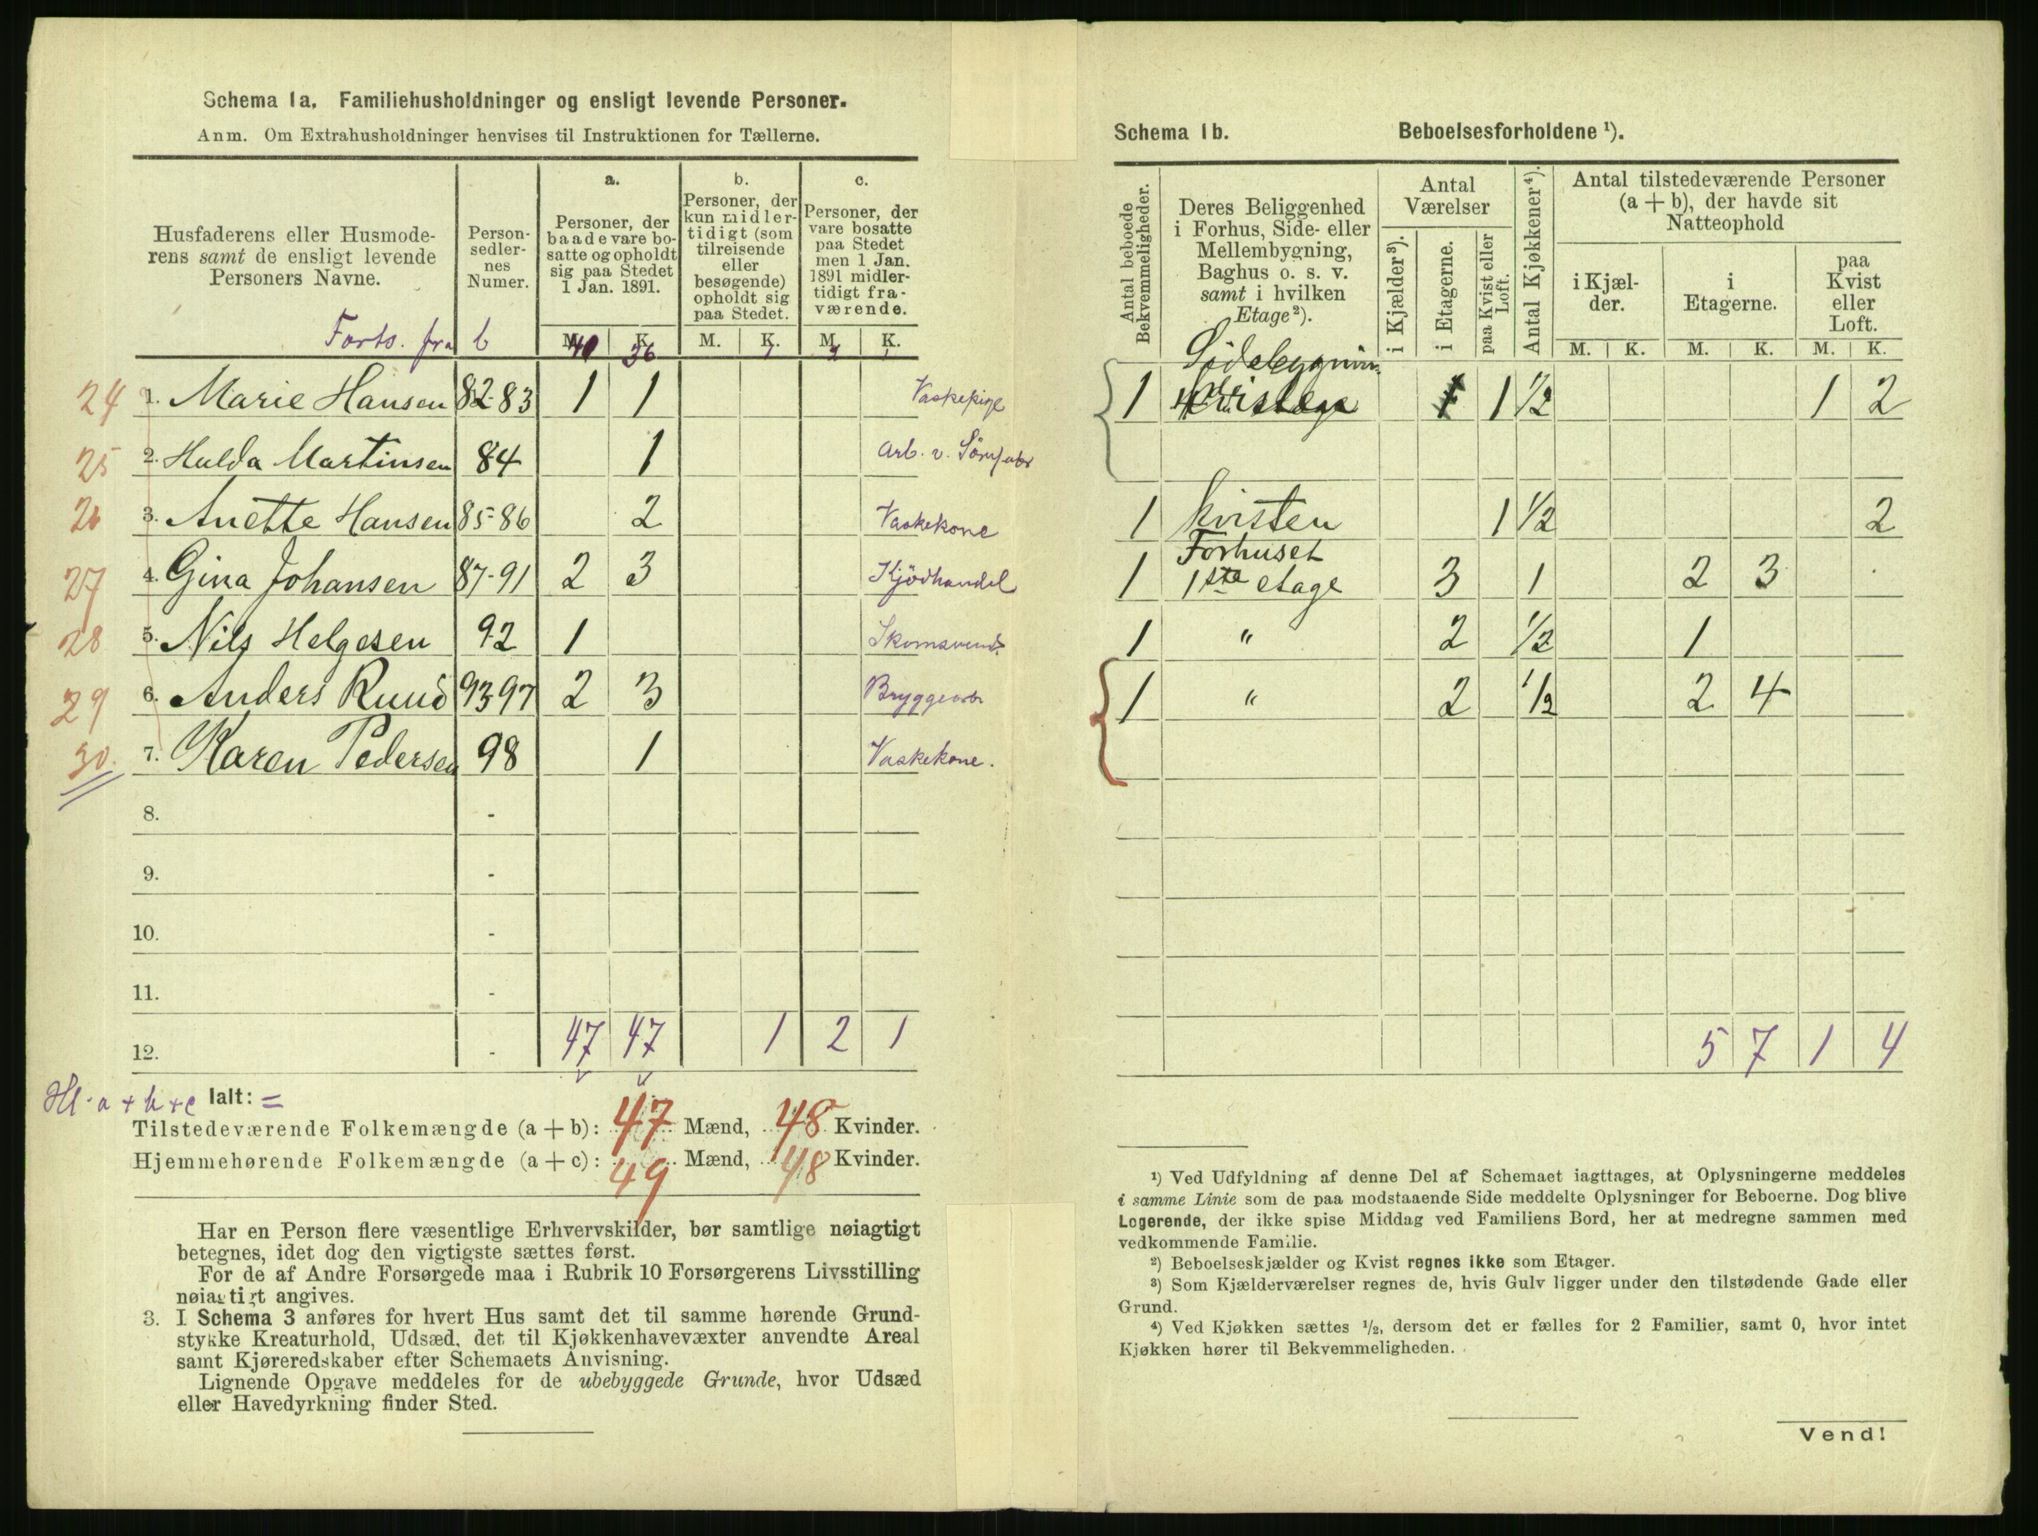 Schema 1a. Familiehusholdninger og ensligt levende Personer.
Anm. Om Extrahusholdninger henvises til Instruktionen for Tællerne.
Husfaderens eller Husmode-
rens samt de ensligt levende
Personers Navne.
Person-
sedler-
nes
Numer.
a.
Personer, der
baade vare bo-
satte og opholdt
sig paa Stedet
1 Jan. 1891.
b.
Personer, der
kun midler-
tidigt (som
tilreisende
eller
besøgende)
opholdt sig
paa Stedet.
c.
Personer, der
vare bosatte
paa Stedet
men 1 Jan.
1891 midler-
tidigt fra-
værende.
M. K. M. K. M. K.
Forts. fra b 40 36 1 2 1
24 1. Marie Hansen 82-83 1 1 Vaskepige
25 2. Hulda Martinsen 84 1 Arb. v.
26 3. Anette Hansen 85-86 2 Vaskekone
27 4. Gina Johansen 87-91 2 3 Kjödhandel
28 5. Nils Helgesen 92 1 Skomsvend
29 6. Anders Ruud 93-97 2 3 Bryggearb
30. 7. Karen Pedersen 98 1 Vaskekone.
8. -
9. -
10. -
11. -
12. - 47 47 1 2 1
Hl. a + b + c Ialt: =
Tilstedeværende Folkemængde (a + b): 47 Mænd, 48 Kvinder.
Hjemmehørende Folkemængde (a + c): 49 Mænd, 48 Kvinder.
Har en Person flere væsentlige Erhvervskilder, bør samtlige nøiagtigt
betegnes, idet dog den vigtigste sættes først.
For de af Andre Forsørgede maa i Rubrik 10 Forsørgerens Livsstilling
nøiagtigt angives.
3. I Schema 3 anføres for hvert Hus samt det til samme hørende Grund-
stykke Kreaturhold, Udsæd, det til Kjøkkenhavevæxter anvendte Areal
samt Kjøreredskaber efter Schemaets Anvisning.
Lignende Opgave meddeles for de ubebyggede Grunde, hvor Udsæd
eller Havedyrkning finder Sted.
Schema 1b. Beboelsesforholdene ¹).
Antal beboede
Bekvemmeligheder.
Deres Beliggenhed
i Forhus, Side- eller
Mellembygning,
Baghus o. s. v.
samt i hvilken
Etage²).
Antal
Værelser
i Kjælder³).
i Etagerne.
paa Kvist eller
Loft.
Antal Kjøkkener⁴).
Antal tilstedeværende Personer
(a + b), der havde sit
Natteophold
i Kjæl-
der.
i
Etagerne.
paa
Kvist
eller
Loft.
M. K. M. K. M. K.
Sidebygnin.
1 1 1/2 1 2
1 Kvisten 1 1/2 2
Forhuset
1 1ste etage 3 1 2 3
1 " 2 1/2 1
1 " 2 1/2 2 4
5 7 1 4
¹) Ved Udfyldning af denne Del af Schemaet iagttages, at Oplysningerne meddeles
i samme Linie som de paa modstaaende Side meddelte Oplysninger for Beboerne. Dog blive
Logerende, der ikke spise Middag ved Familiens Bord, her at medregne sammen med
vedkommende Familie.
²) Beboelseskjælder og Kvist regnes ikke som Etager.
³) Som Kjælderværelser regnes de, hvis Gulv ligger under den tilstødende Gade eller
Grund.
⁴) Ved Kjøkken sættes ¹/₂, dersom det er fælles for 2 Familier, samt 0, hvor intet
Kjøkken hører til Bekvemmeligheden.
Vend!